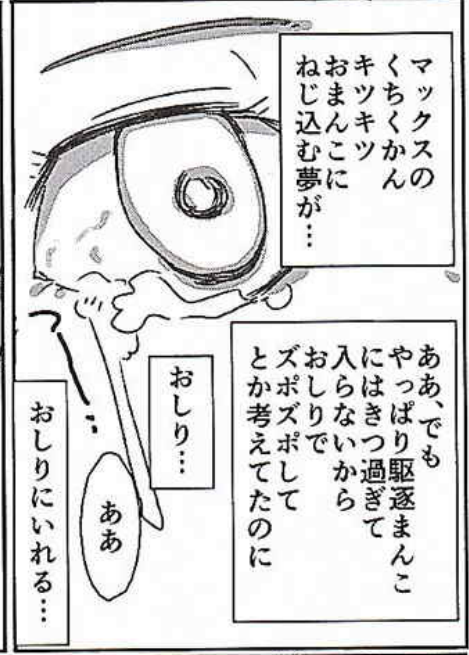 マックスの
くちくかん
キツキツ
おまんこに
ねじ込む夢が…
ああ、でも
やっぱり駆逐まんこ
にはきつ過ぎて
入らないから
おしりで
ズポズポして
とか考えてたのに
おしり…
ああ
おしりにいれる…